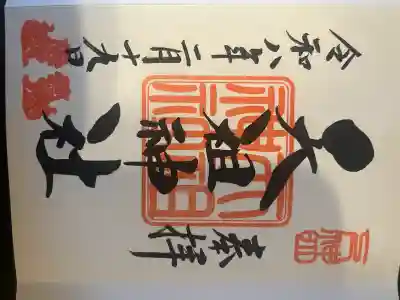 奉拝
大祖神社
令和八年二月十九日